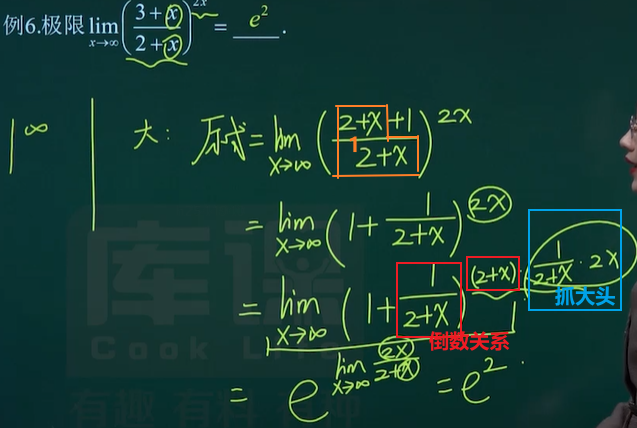 例6.极限 lim x→∞ ((3+x)/(2+x))^2x = e² .
1^∞
大: 原式 = lim x→∞ ((2+x+1)/(2+x))^2x
= lim x→∞ (1 + 1/(2+x))^2x
= lim x→∞ (1 + 1/(2+x))^(2+x)·1/(2+x)·2x
抓大头
倒数关系
1
= e^(lim x→∞ 2x/(2+x)) = e².
库课
Cook
有趣 有料